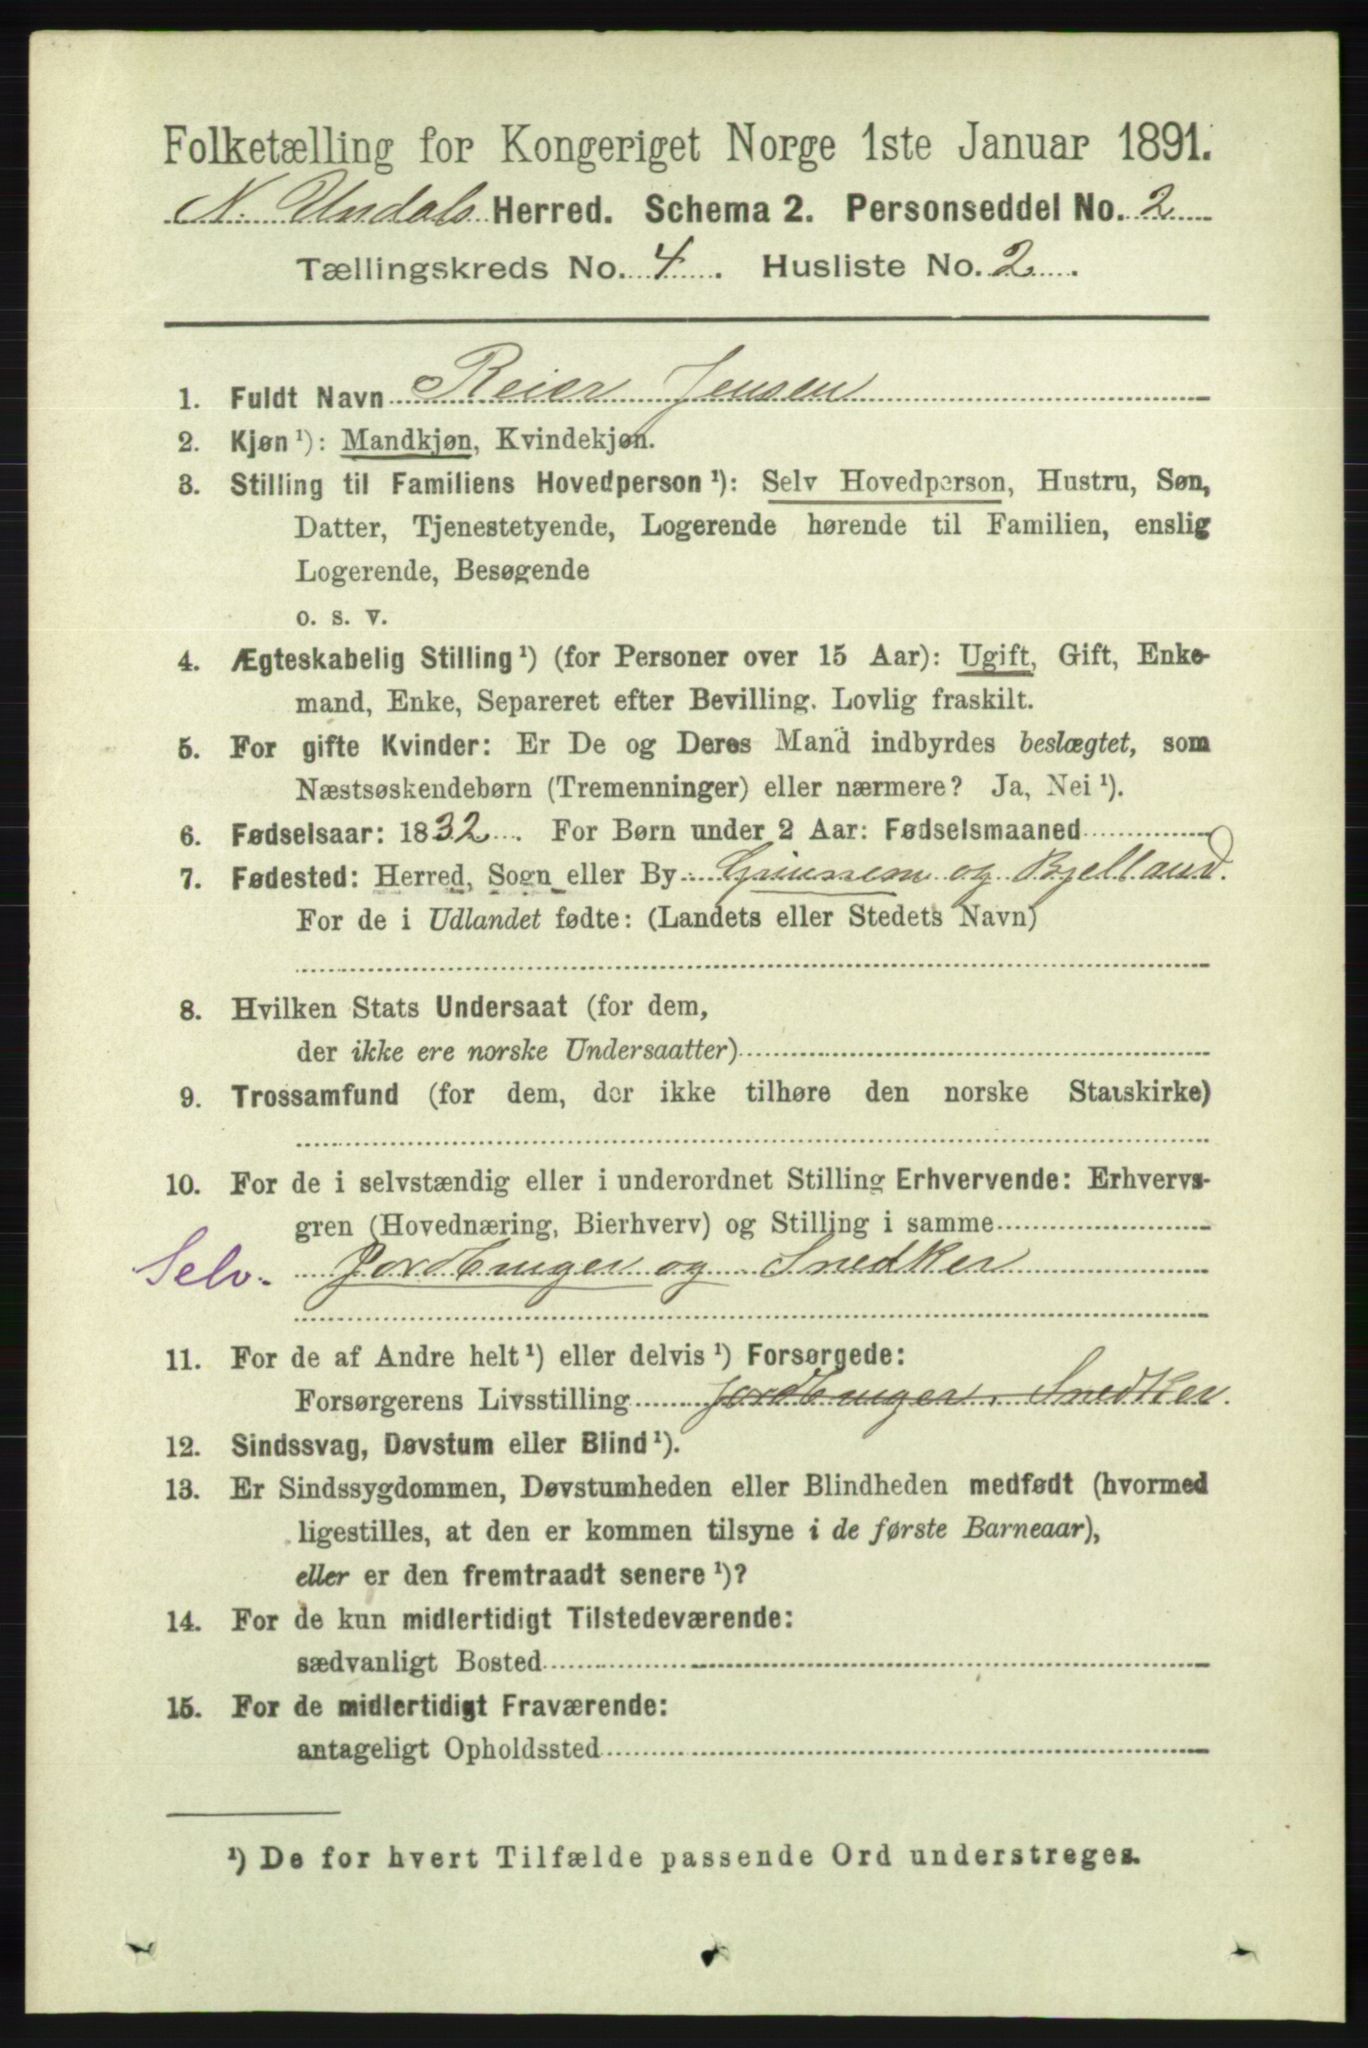 Folketælling for Kongeriget Norge 1ste Januar 1891.
N. Undals Herred. Schema 2. Personseddel No. 2
Tællingskreds No. 4. Husliste No. 2.
1. Fuldt Navn Reier Jensen
2. Kjøn ¹): Mandkjøn, Kvindekjøn.
3. Stilling til Familiens Hovedperson ¹): Selv Hovedperson, Hustru, Søn,
Datter, Tjenestetyende, Logerende hørende til Familien, enslig
Logerende, Besøgende
o. s. v.
4. Ægteskabelig Stilling ¹) (for Personer over 15 Aar): Ugift, Gift, Enke-
mand, Enke, Separeret efter Bevilling. Lovlig fraskilt.
5. For gifte Kvinder: Er De og Deres Mand indbyrdes beslægtet, som
Næstsøskendebørn (Tremenninger) eller nærmere? Ja, Nei ¹).
6. Fødselsaar: 1832. For Børn under 2 Aar: Fødselsmaaned
7. Fødested: Herred, Sogn eller By og Bjelland.
For de i Udlandet fødte: (Landets eller Stedets Navn)
8. Hvilken Stats Undersaat (for dem,
der ikke ere norske Undersaatter)
9. Trossamfund (for dem, der ikke tilhøre den norske Statskirke)
10. For de i selvstændig eller i underordnet Stilling Erhvervende: Erhvervs-
gren (Hovednæring, Bierhverv) og Stilling i samme
Selv. Jordbruger og Snedker
11. For de af Andre helt ¹) eller delvis ¹) Forsørgede:
Forsørgerens Livsstilling Jordbruger, Snedker.
12. Sindssvag, Døvstum eller Blind ¹).
13. Er Sindssygdommen, Døvstumheden eller Blindheden medfødt (hvormed
ligestilles, at den er kommen tilsyne i de første Barneaar),
eller er den fremtraadt senere ¹)?
14. For de kun midlertidigt Tilstedeværende:
sædvanligt Bosted
15. For de midlertidigt Fraværende:
antageligt Opholdssted
¹) De for hvert Tilfælde passende Ord understreges.